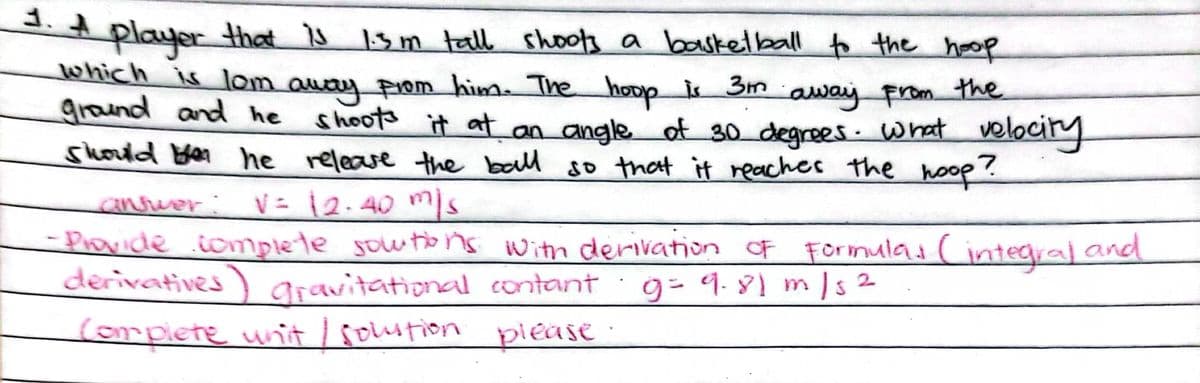 1. A player that is 1.3 m tall shoots a basketball to the hoop
which is 10m away from him. The hoop is 3m away from the
ground and he shoots it at an angle of 30 degrees. What velocity
should he release the ball so that it reaches the hoop?
answer: V= 12.40 m/s
- Provide complete solutions with derivation OF Formulas (integral and
derivatives) gravitational contant g= 9.81 m/s2
Complete unit / solution please.